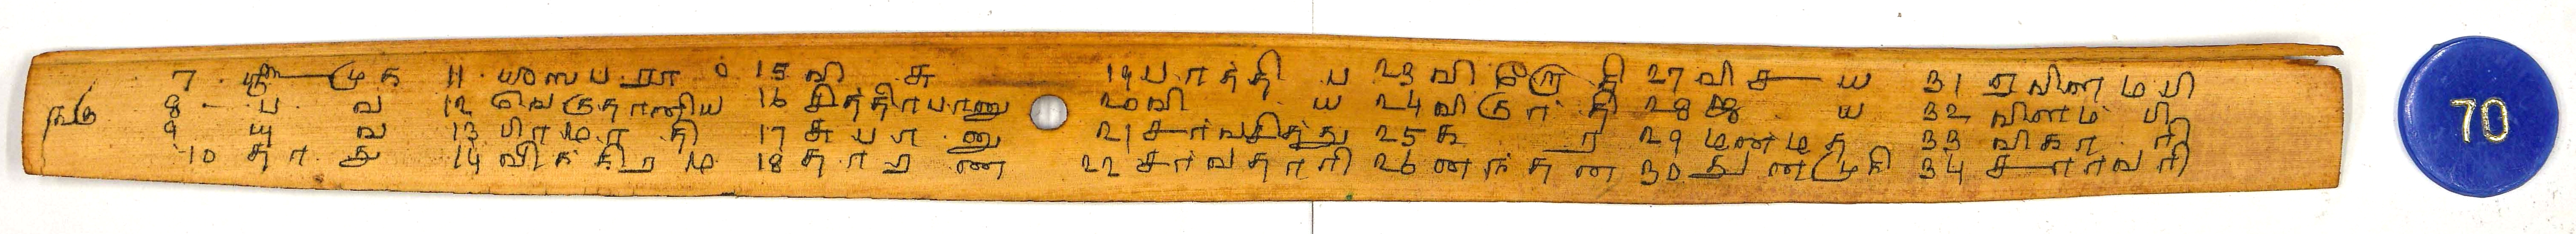 7 ஸ்ரீமுக 11 யிஸபறா ம் 15 வி சு 19 பாத்தி ப 23 விரோதி 27 விச ய 31 ஏவிளமபி
8 ப வ 12 வெகுதானிய 16 சித்திரபானு 20 விய 24 விகுர்தி 28 ஜ ய 32 விளம் பி
9 யு வ 13 பிரமாதி 17 சுபா னு 21 சார்வசித்து 25 க ர 29 மன்மத 33 விகா ரி
10 தா து 14 விக்கிறம 18 தாற ண 22 சர்வதாரி 26 னந்தன 30 துன்முகி 34 சார்வரி
70